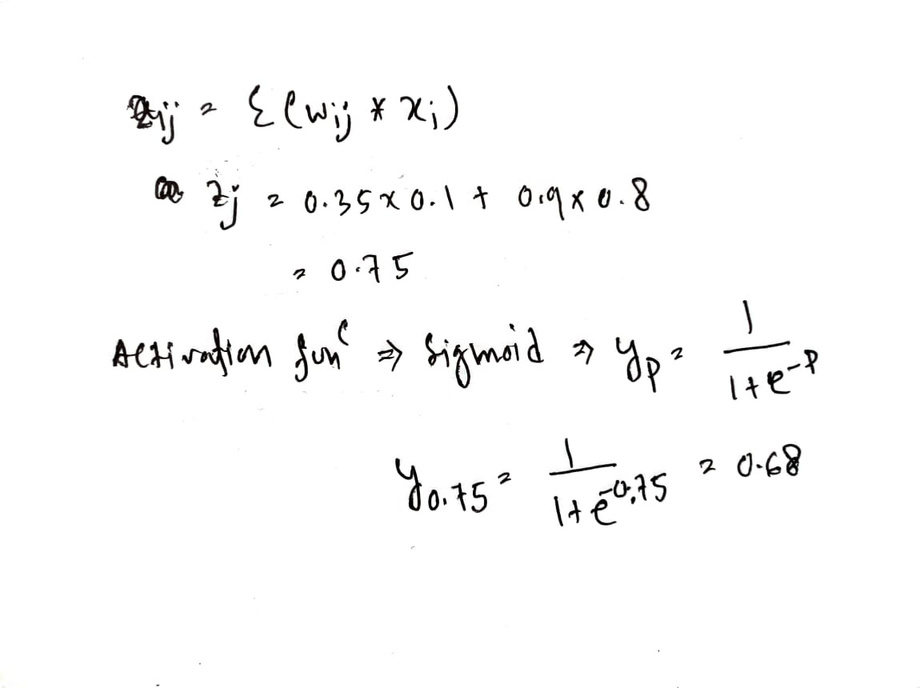 zij = Σ(wij * xi)
zj = 0.35 x 0.1 + 0.9 x 0.8
= 0.75
Activation func ⇒ Sigmoid ⇒ yp = 1 / 1+e^-p
y0.75 = 1 / 1+e^-0.75 = 0.68